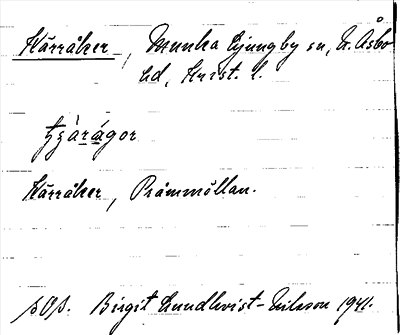 Kärråker, Munka Ljungby sn, N. Åsbo
hd, Krist. l.
tʒärágor
Kärråker, Prämmöllan.
Birgit Lundkvist-Nilsson 1941.